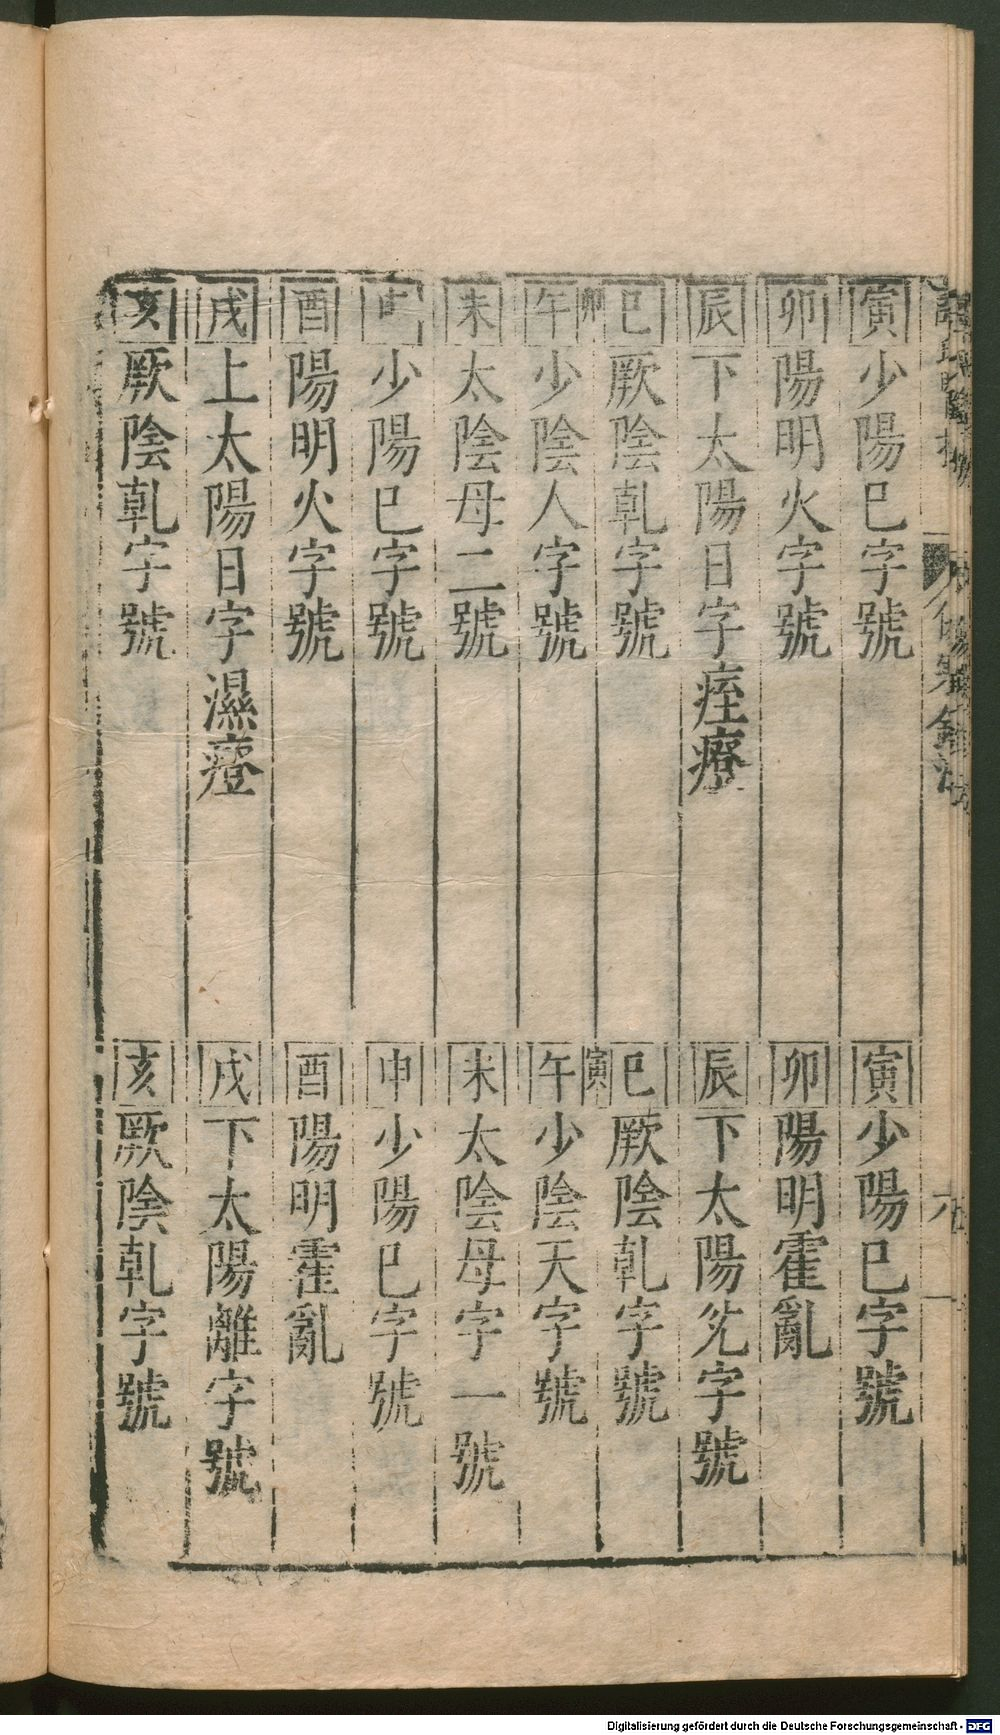 寅 少陽巳字號
卯 陽明火字號
辰 下太陽日字痓療
巳 厥陰乹字號
卯
午 少陰人字號
未 太陰母二號
申 少陽巳字號
酉 陽明火字號
戌 上太陽日字濕瘞
亥 厥陰乹字號
寅 少陽巳字號
卯 陽明霍亂
辰 下太陽字號
巳 厥陰乹字號
寅
午 少陰天字號
未 太陰母字一號
申 少陽巳字號
酉 陽明霍亂
戌 下太陽離字號
亥 厥陰乹字號
Digitalisierung gefördert durch die Deutsche Forschungsgemeinschaft - DFG